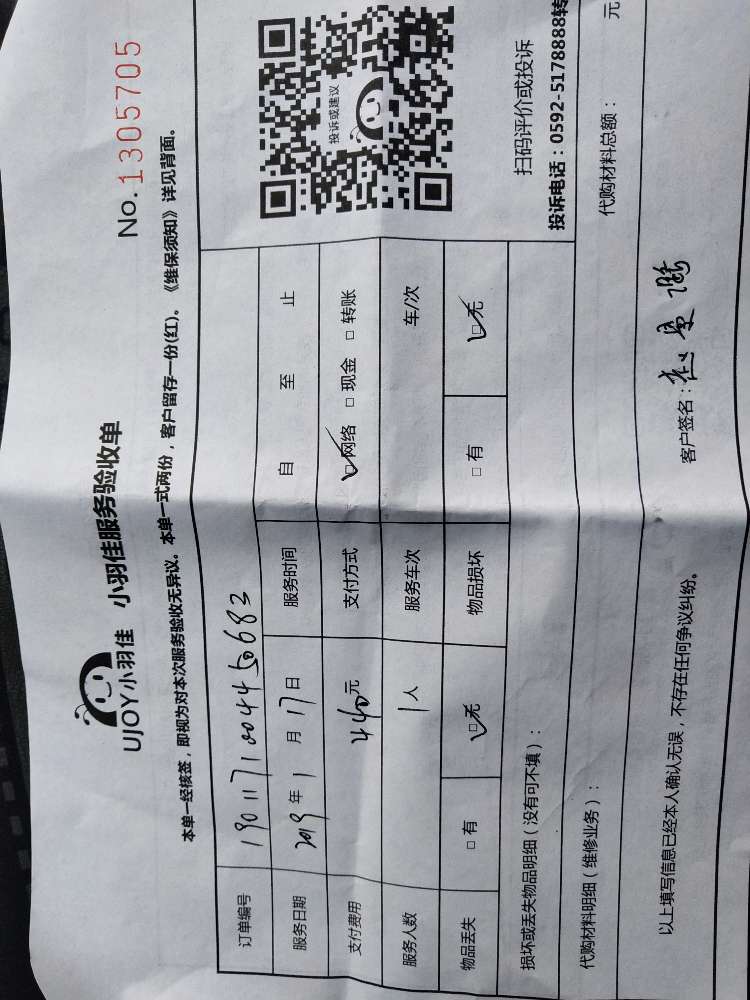 UJOY小羽佳 小羽佳服务验收单
No.1305705
本单一经核签，即视为对本次服务验收无异议。本单一式两份，客户留存一份(红)。《维保须知》详见背面。
订单编号 1901171004450682
服务日期 2019年1月17日 服务时间 自 至 止
支付费用 440元 支付方式 网络 现金 转账
服务人数 1人 服务车次 车/次
物品丢失 有 无 物品损坏 有 无
投诉或建议
扫码评价或投诉
投诉电话：0592-5178888转
损坏或丢失物品明细（没有可不填）：
代购材料明细（维修业务）： 代购材料总额： 元
以上填写信息已经本人确认无误，不存在任何争议纠纷。 客户签名：